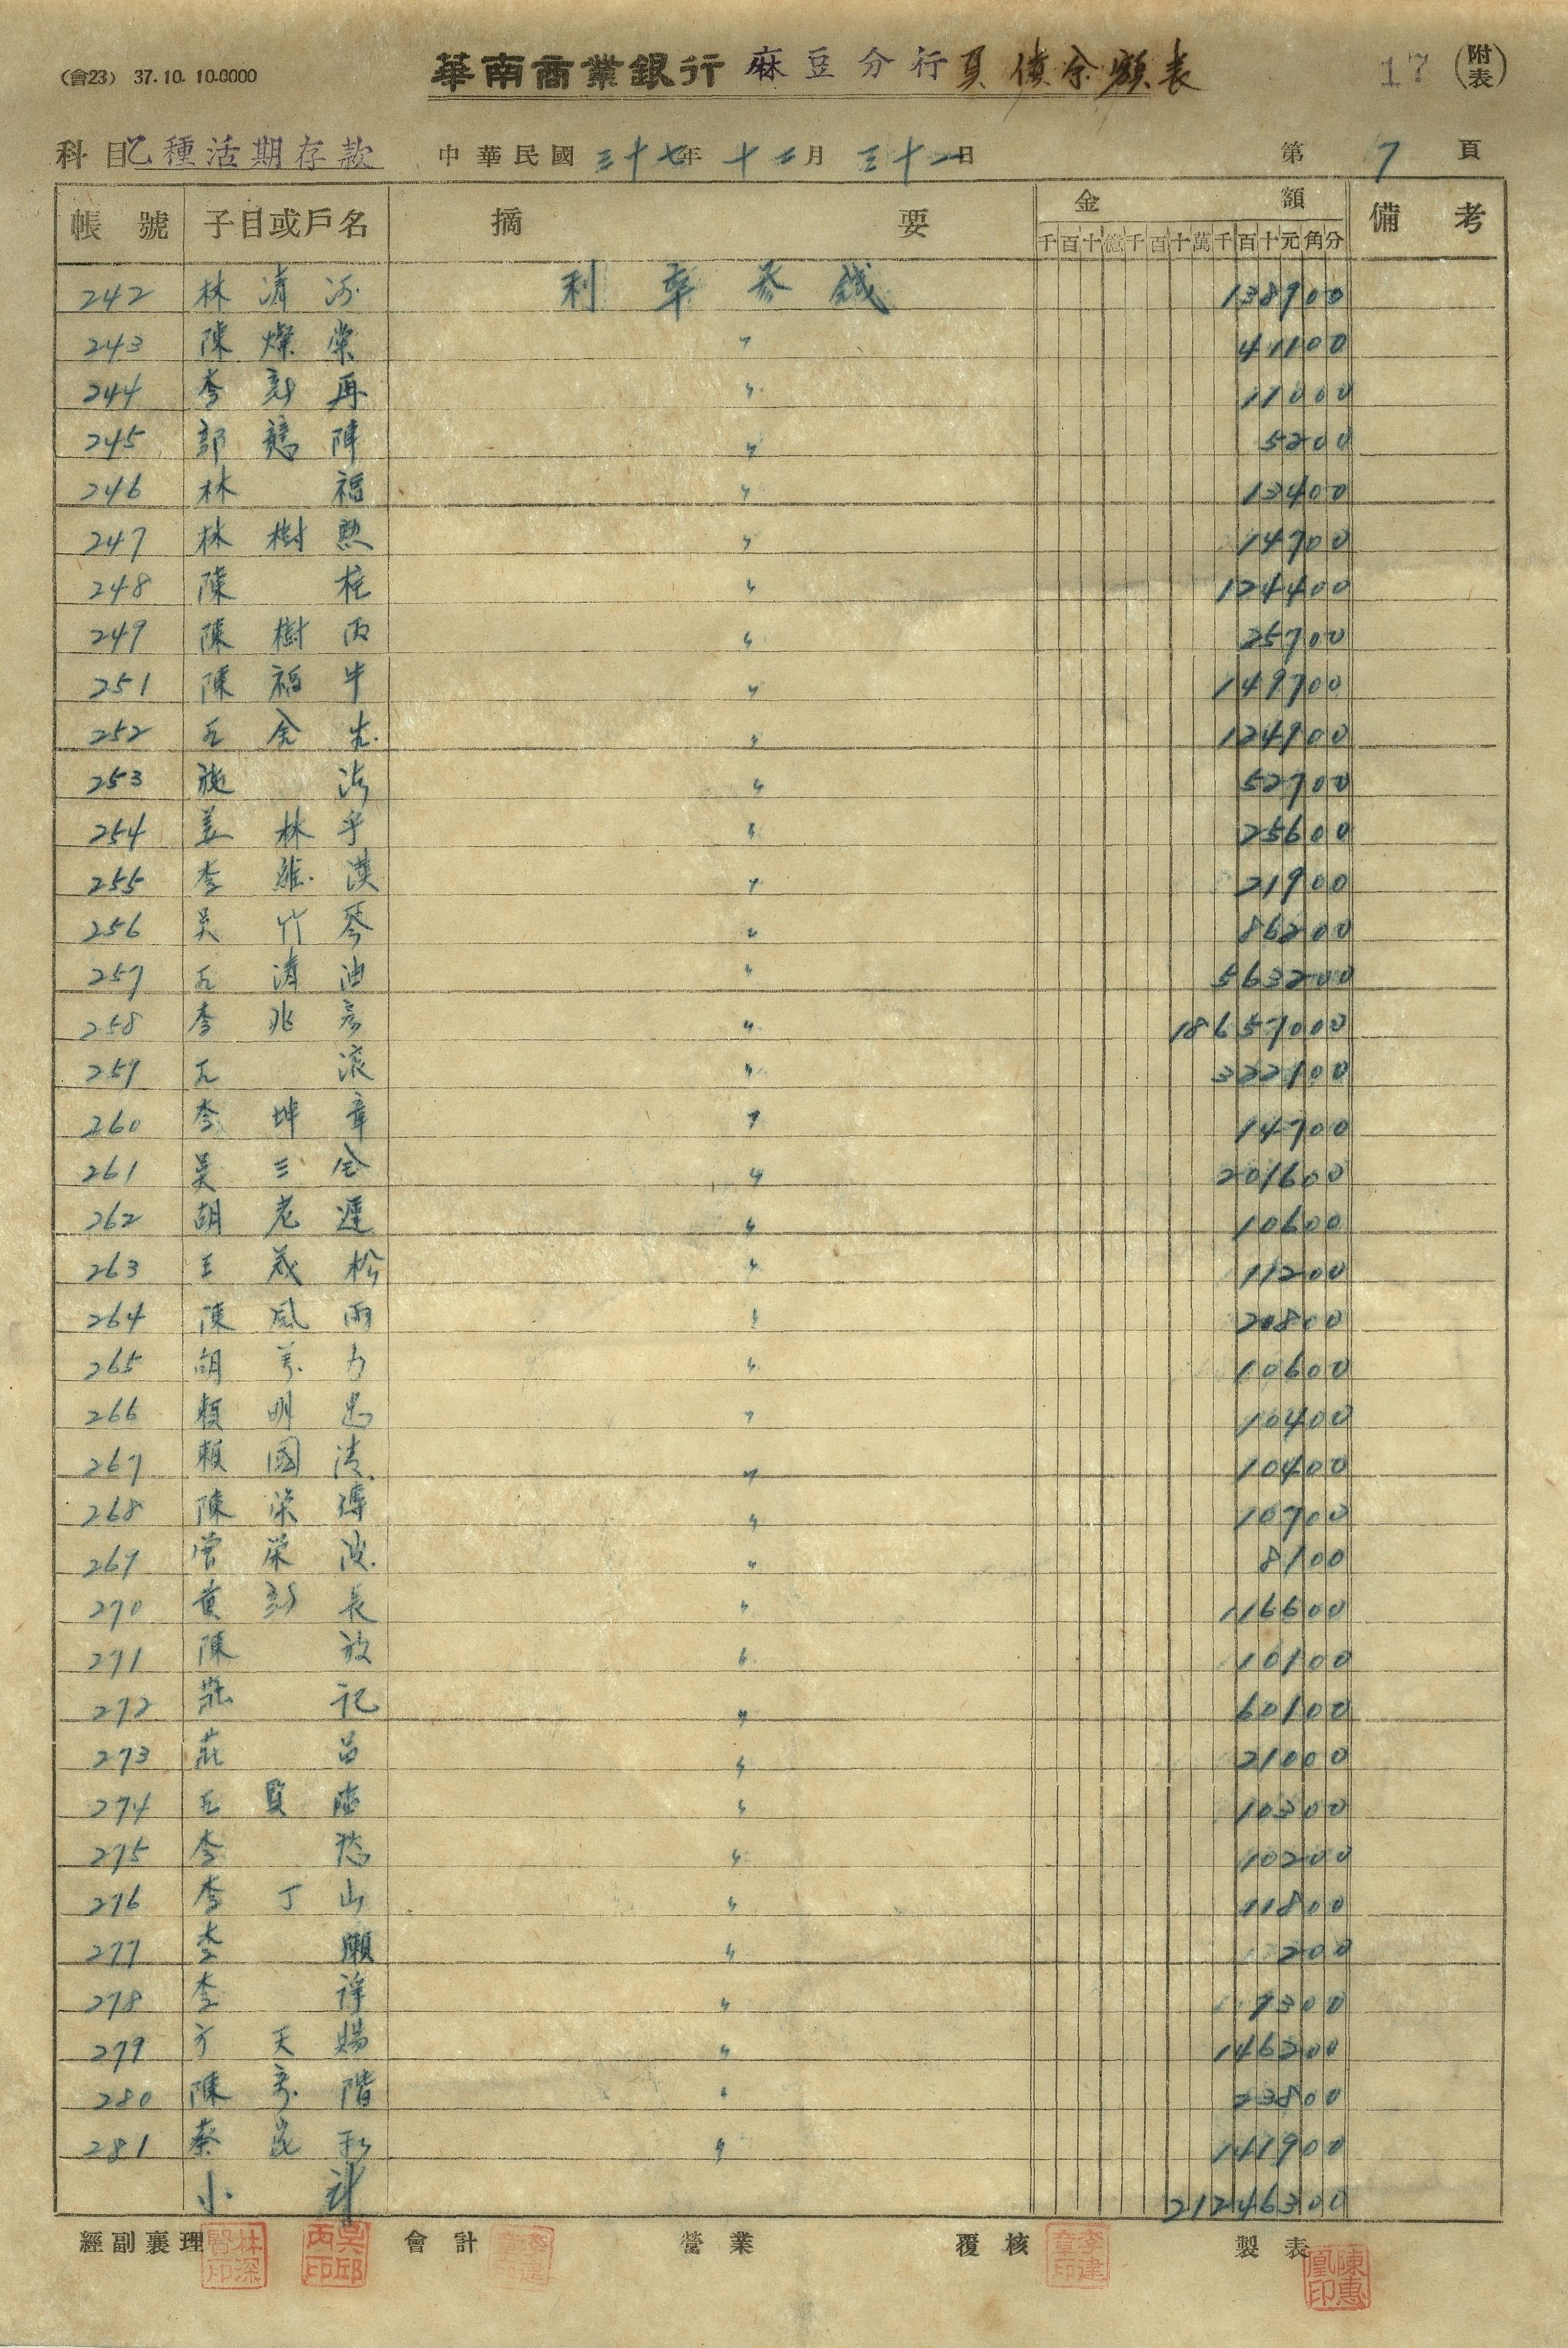 (會23) 37.10.10.0000
華南商業銀行 麻豆分行負債余額表
17 (附表)
科目 乙種活期存款 中華民國三十七年十二月三十一日 第7頁
帳號 子目或戶名 摘要 金額 備考
千百十億千百十萬千百十元角分
242 林清河 利率參錢 138900
243 陳燦棠 〃 41100
244 李彭再 〃 11000
245 郭 陣 〃 5200
246 林福 〃 13400
247 林樹 〃 14700
248 陳柱 〃 124400
249 陳樹丙 〃 25700
251 陳福牛 〃 149700
252 124900
253 施 〃 52700
254 姜林 〃 25600
255 李 漢 〃 21900
256 吳竹琴 〃 86200
257 清 〃 563200
258 李兆彥 〃 18657000
259 滾 〃 322100
260 李坤章 〃 14700
261 吳三全 〃 201600
262 胡老遲 〃 10600
263 王茂松 〃 11200
264 陳風雨 〃 20800
265 胡萬力 〃 10600
266 賴明忠 〃 10400
267 賴國清 〃 10400
268 陳榮 〃 10700
269 曾榮波 〃 8100
270 黃彭長 〃 116600
271 陳放 〃 10100
272 莊記 〃 60100
273 莊 〃 21000
274 王賢 〃 10300
275 李 〃 10200
276 李丁山 〃 11800
277 李願 〃 200
278 李祥 〃 7300
279 方天賜 〃 146200
280 陳萬階 〃 23800
281 蔡崑 〃 141900
小計 21246300
經副襄理 會計 營業 覆核 製表
林深賢印 吳邱丙印 李建章印 陳惠凰印